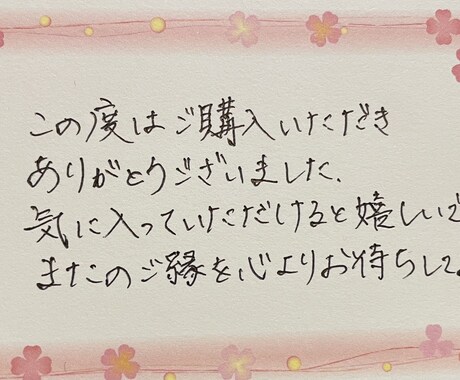 この度はご購入いただき
ありがとうございました.
気に入っていただけると嬉しいで
またのご縁を心よりお待ちして